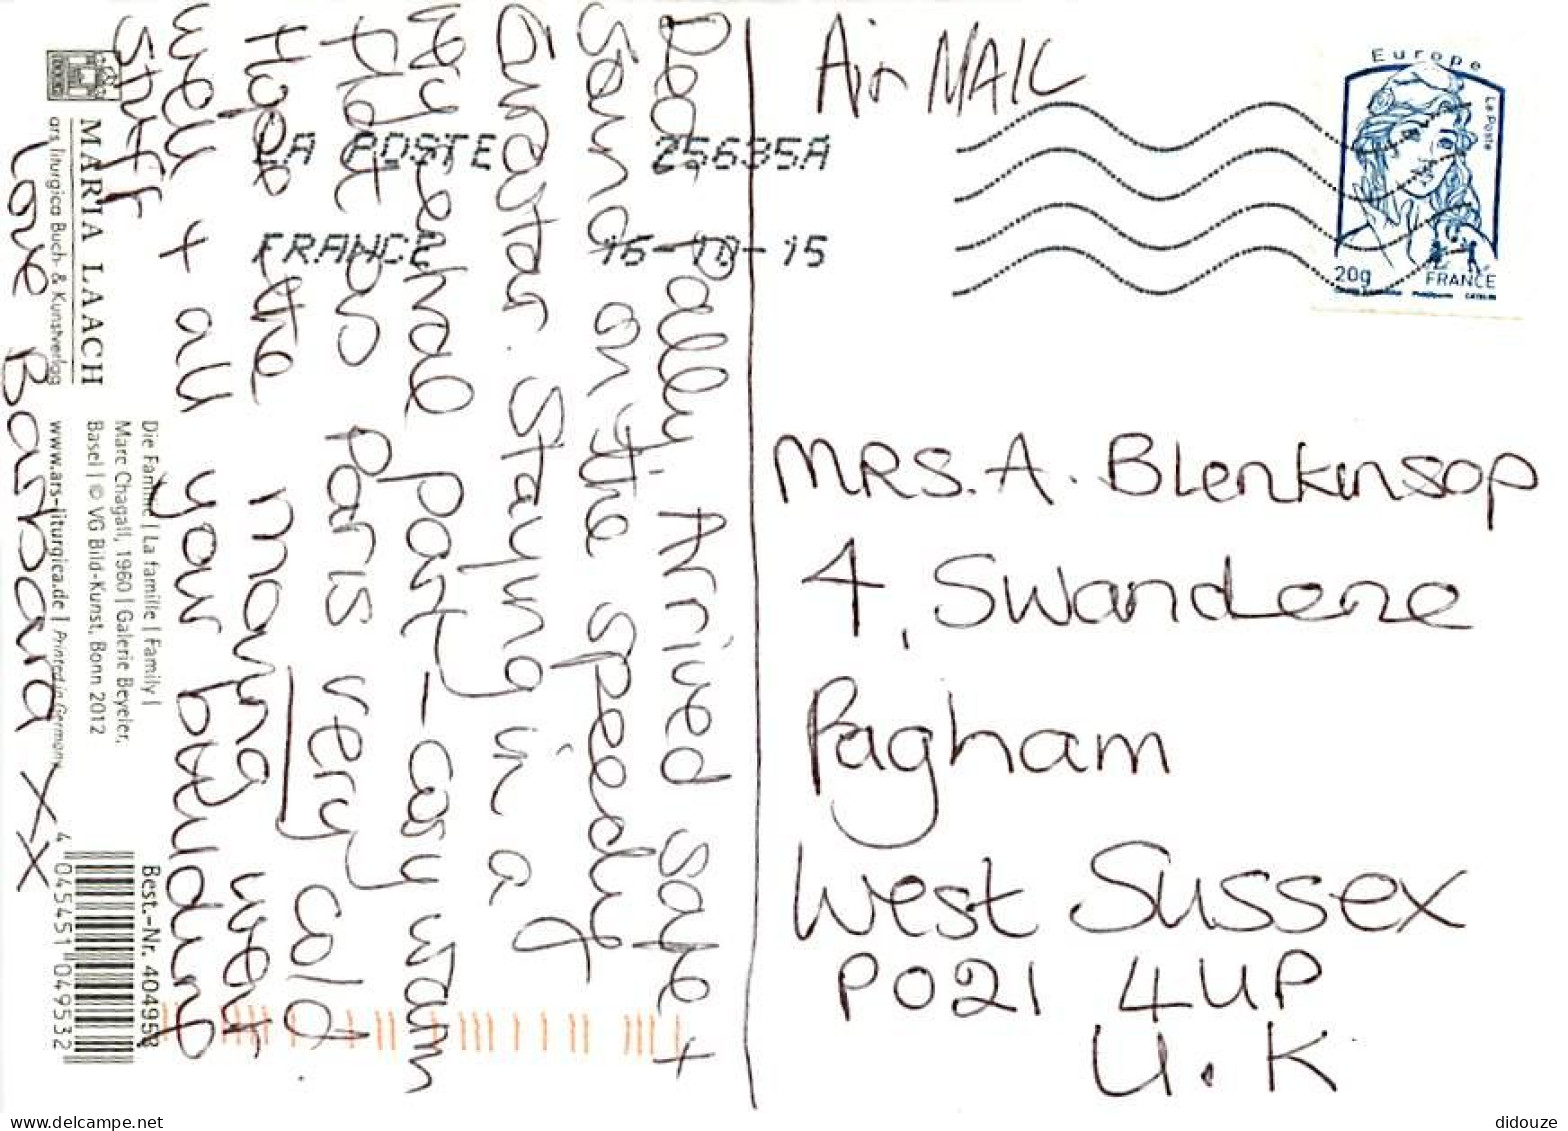 Air MAIL
Europe
La Poste
20g
FRANCE
LA POSTE 25635A
FRANCE 16-10-15
MRS. A. Blenkinsop
4, Swandene
Pagham
West Sussex
PO21 4UP
U.K
Dear Pally, Arrived safe +
Sound on the speedy
Eurostar. Staying in a
very central part - cosy warm
flat on Paris very cold.
Hope the moving went
well + all your building
stuff
Love Barbara XX
MARIA LAACH
ars liturgica Buch- & Kunstverlag
Die Familie | La famille | Family |
Marc Chagall, 1960 | Galerie Beyeler,
Basel | © VG Bild-Kunst, Bonn 2012
www.ars-liturgica.de | Printed in Germany
Best.-Nr. 404953
4 045451 049532
didouze